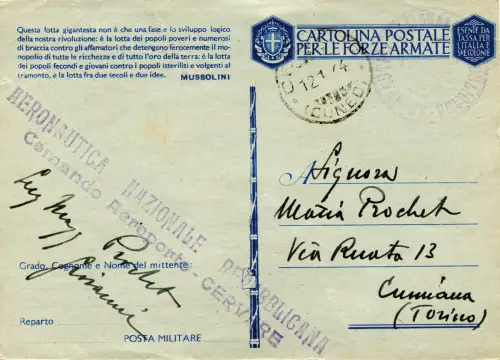 Questa lotta gigantesca non è che una fase e lo sviluppo logico
della nostra rivoluzione: è la lotta dei popoli poveri e numerosi
di braccia contro gli affamatori che detengono ferocemente il mo-
nopolio di tutte le ricchezze e di tutto l'oro della terra: è la lotta
dei popoli fecondi e giovani contro i popoli isteriliti e volgenti al
tramonto, e la lotta fra due secoli e due idee.
MUSSOLINI
AERONAUTICA NAZIONALE REPUBBLICANA
Comando Aeroporto - CERVERE
Grado, Cognome e Nome del mittente:
Rochet
Reparto
POSTA MILITARE
CARTOLINA POSTALE
PER LE FORZE ARMATE
ESENTE DA
TASSA PER
L'ITALIA E
12.1.44
(CUNEO)
A Signora
Maria Rochet
Via Ruata 13
Cumiana
(Torino)